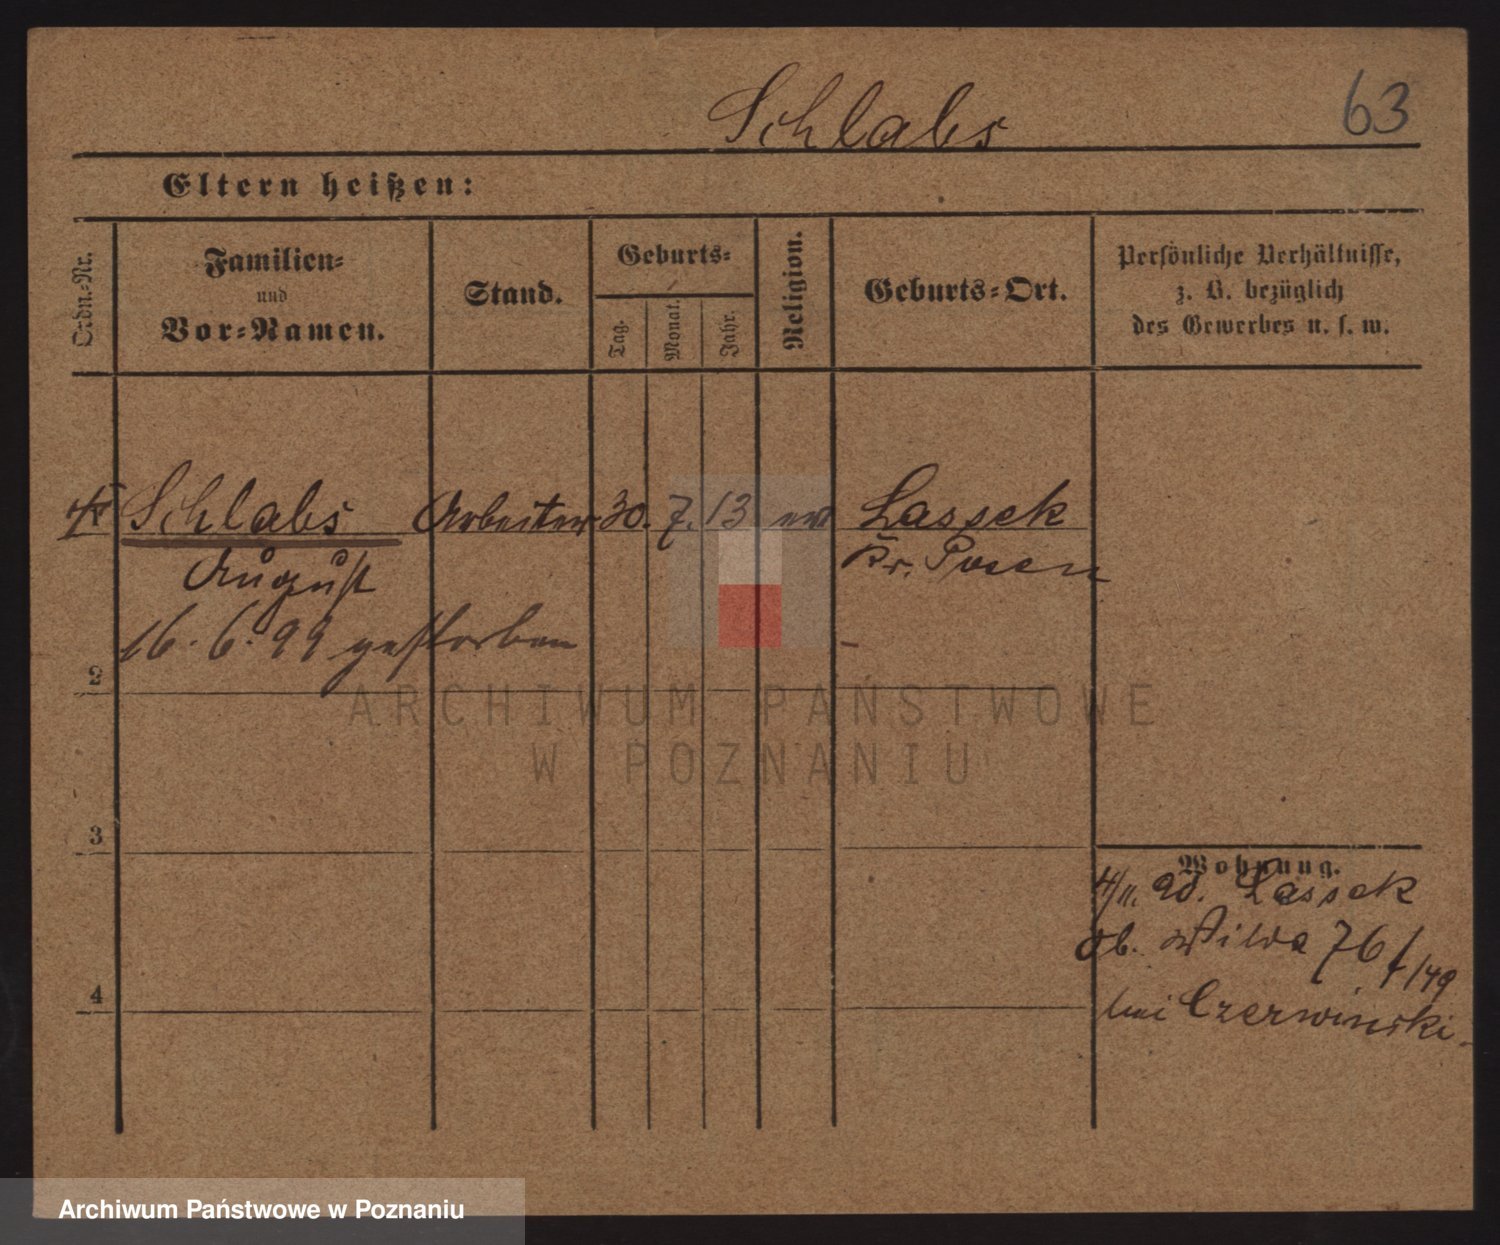 Schlabs
63
Eltern heißen:
Ordn.-Nr.
Familien-
und
Vor-Namen.
Stand.
Geburts-
Tag.
Monat.
Jahr.
Religion.
Geburts-Ort.
Persönliche Verhältnisse,
z. B. bezüglich
des Gewerbes u. s. w.
Schlabs Arbeiter 30. 7. 13 Lassek
August Kr. Posen
16. 6. 99 gestorben
2
ARCHIWUM PAŃSTWOWE
W POZNANIU
3
Wohnung.
Lassek
Ob. Wilda 76
4
bei Czerwinski.
Archiwum Państwowe w Poznaniu